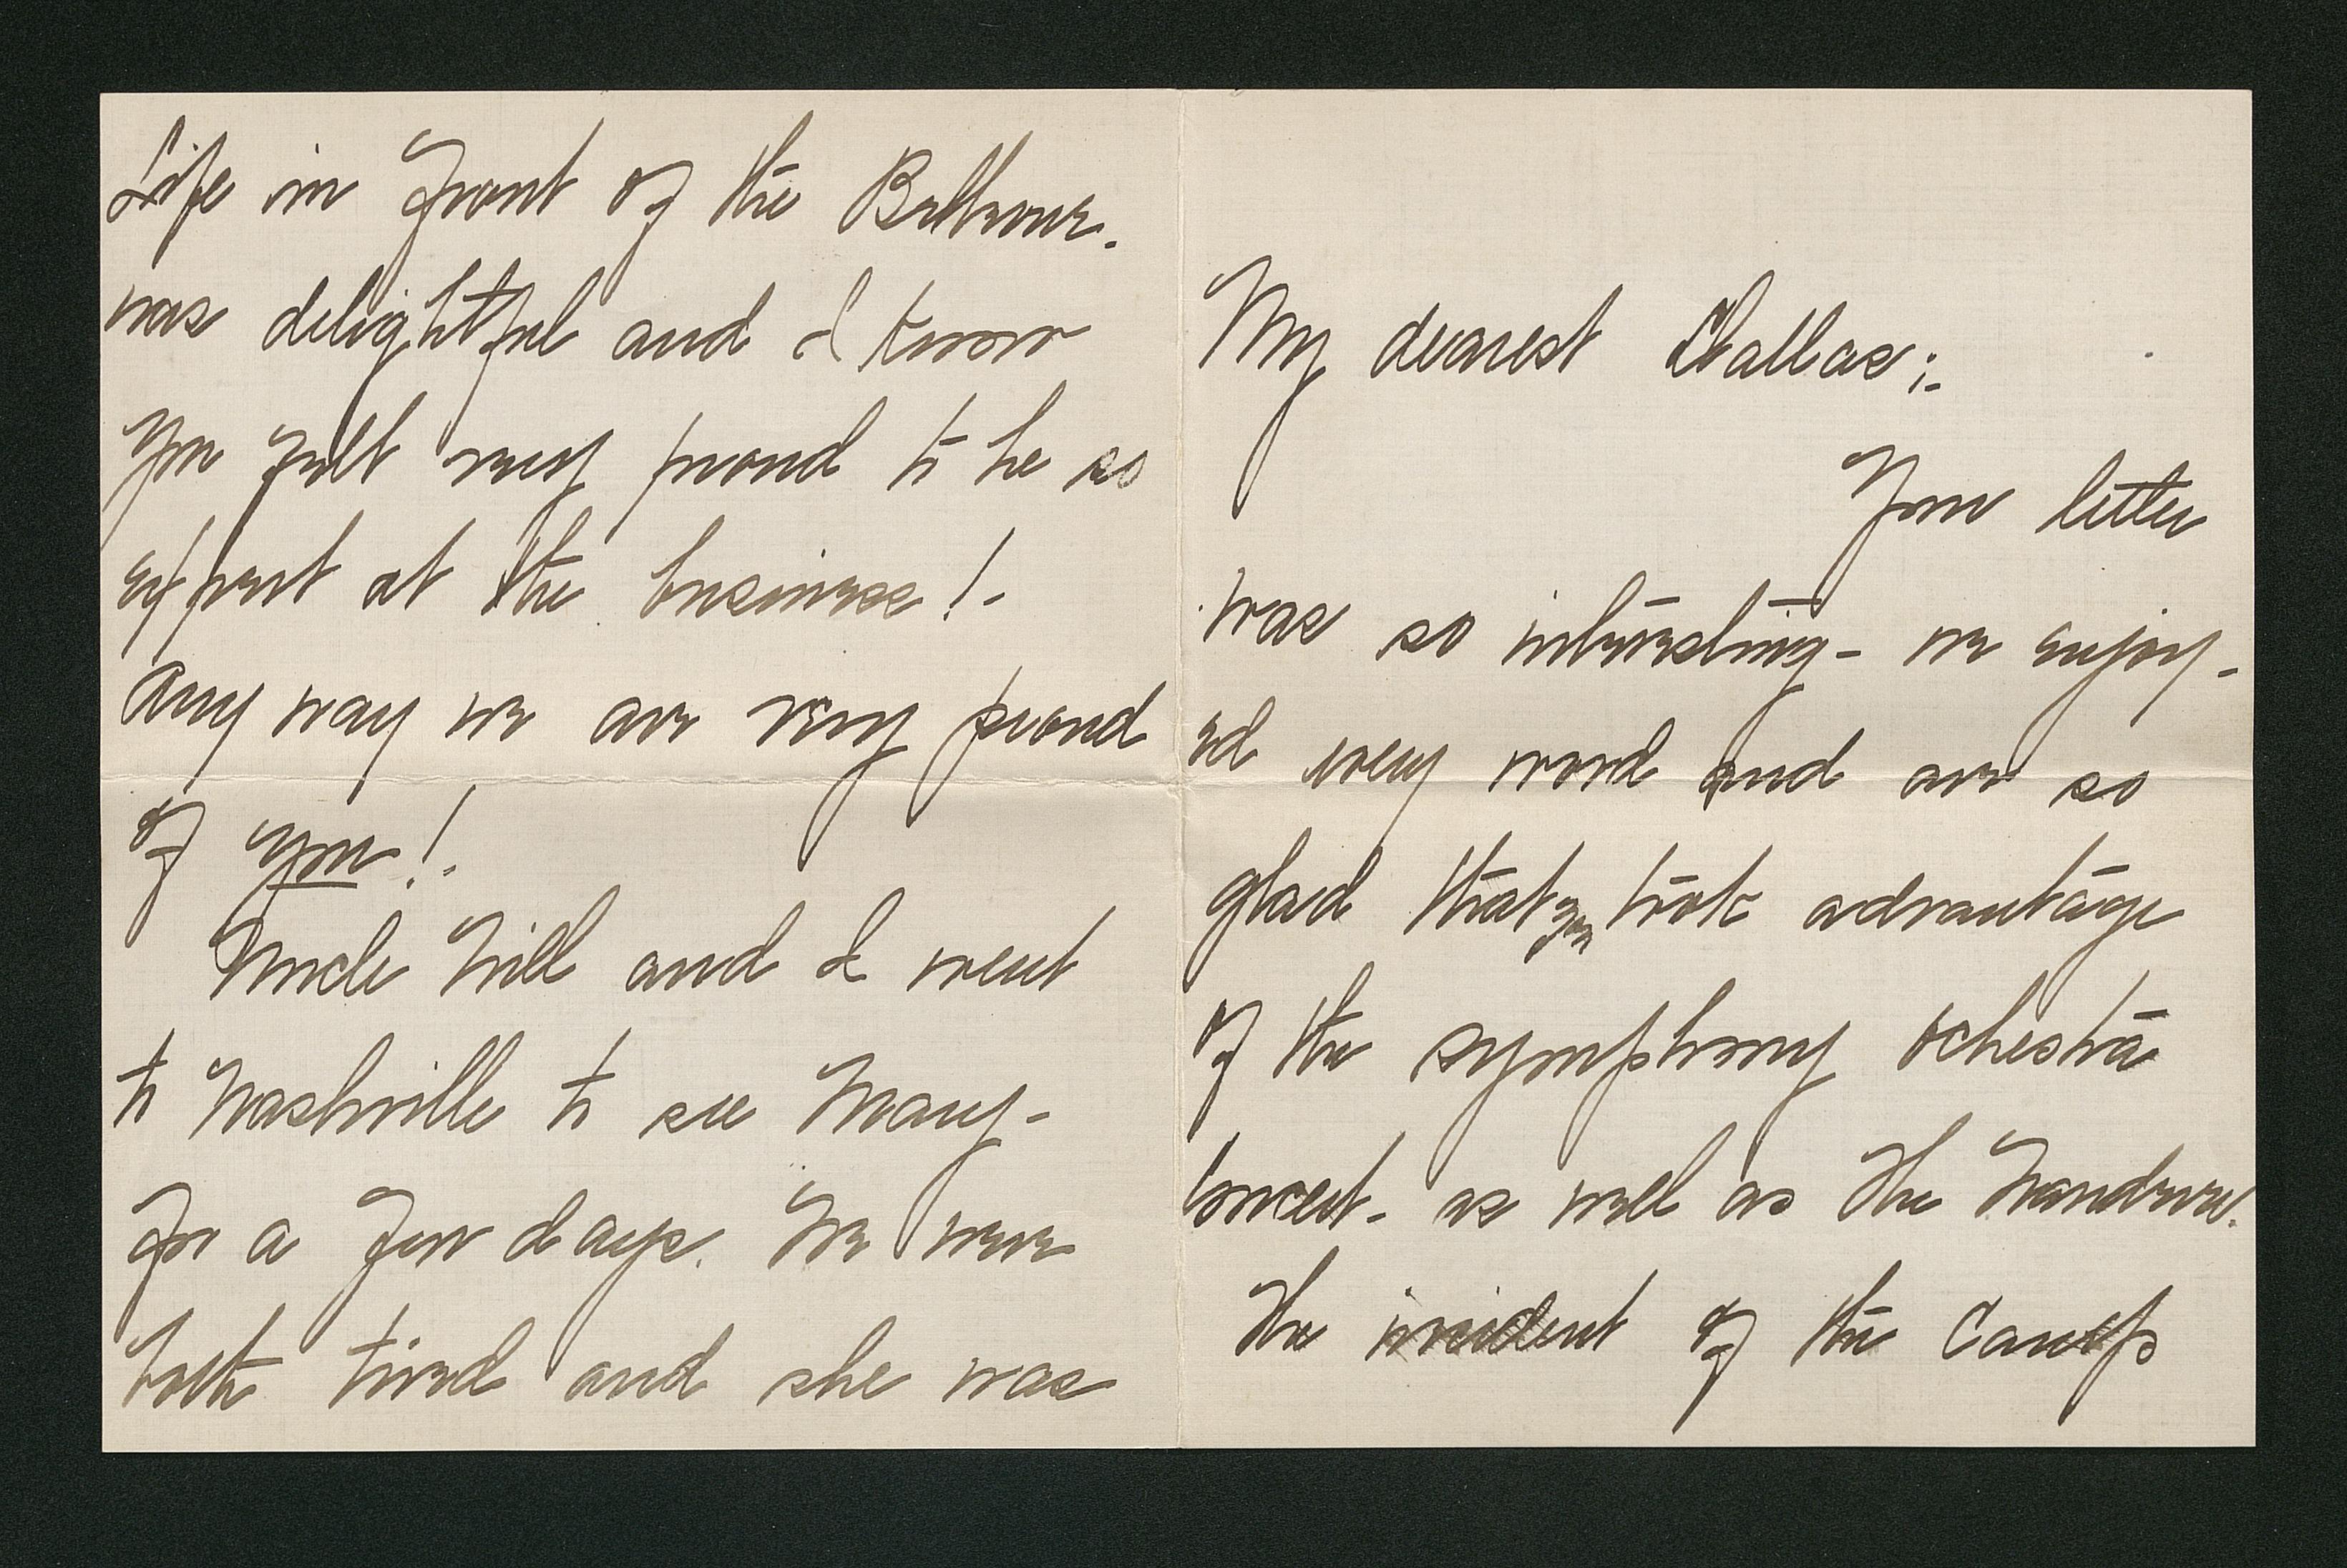 My dearest Dallas;-
Your letter
was so interesting - we enjoy-
ed every word and are so
glad that you took advantage
of the symphony ochestra
Concert - as well as the
The incident of the Camp
Life in front of the Biltmore.
was delightful and I know
you felt very proud to be so
expert at the business! -
Any way we are very proud
of you!.
Uncle Will and I went
to Nashville to see Mary -
for a few days. We were
both tired and she was